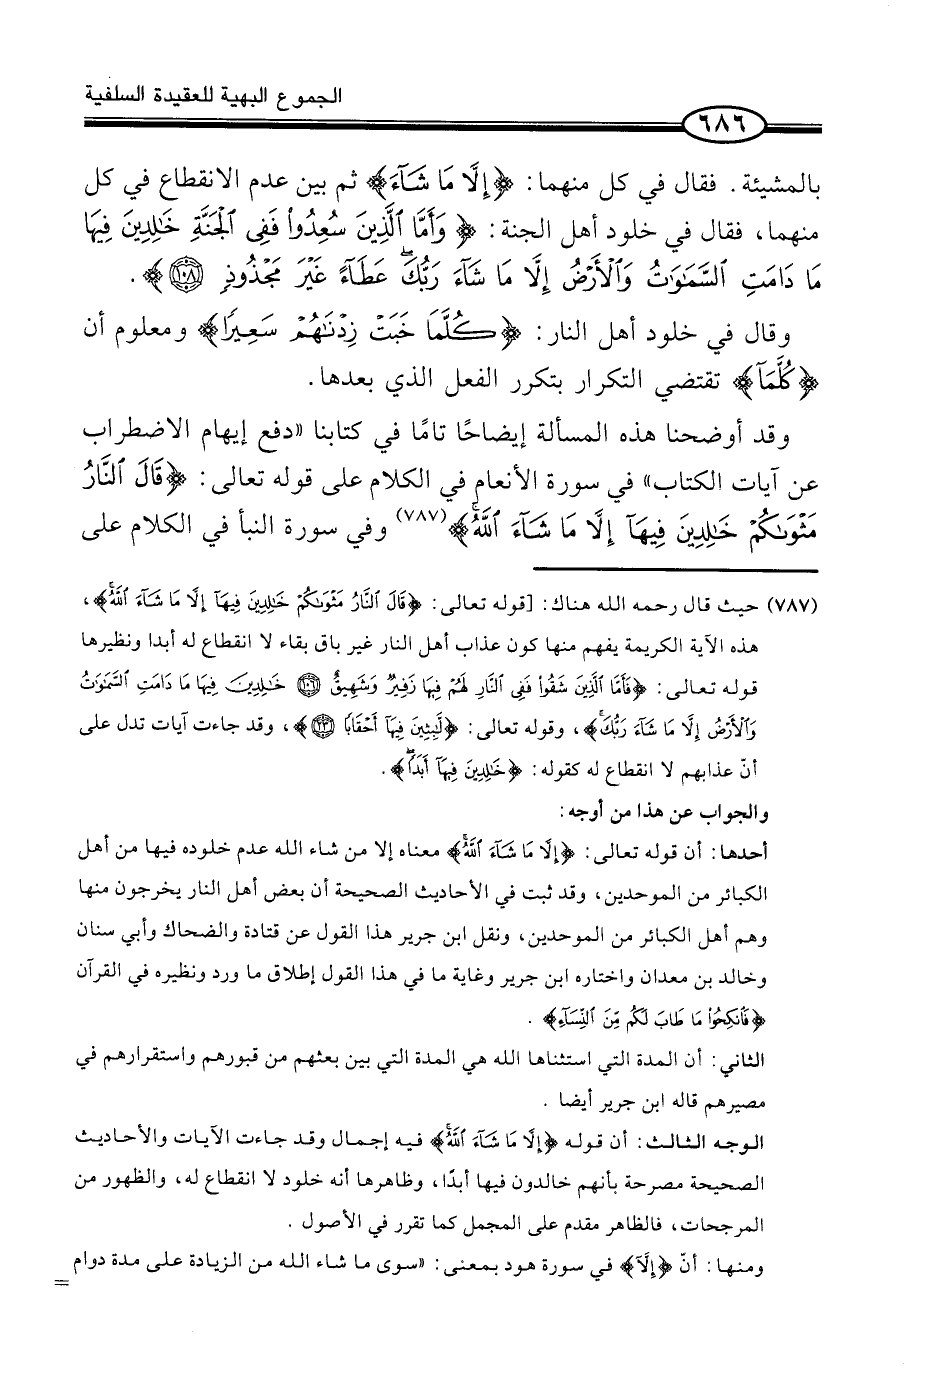 الجموع البهية للعقيدة السلفية
٦٨٦
بالمشيئة. فقال في كل منهما: ﴿إِلَّا مَا شَآءَ﴾ ثم بين عدم الانقطاع في كل
منهما، فقال في خلود أهل الجنة: ﴿وَأَمَّا ٱلَّذِينَ سُعِدُواْ فَفِى ٱلْجَنَّةِ خَٰلِدِينَ فِيهَا
مَا دَامَتِ ٱلسَّمَٰوَٰتُ وَٱلْأَرْضُ إِلَّا مَا شَآءَ رَبُّكَ ۖ عَطَآءً غَيْرَ مَجْذُوذٍ ١٠٨﴾.
وقال في خلود أهل النار: ﴿كُلَّمَا خَبَتْ زِدْنَٰهُمْ سَعِيرًا﴾ ومعلوم أن
﴿كُلَّمَآ﴾ تقتضي التكرار بتكرر الفعل الذي بعدها.
وقد أوضحنا هذه المسألة إيضاحًا تامًا في كتابنا «دفع إيهام الاضطراب
عن آيات الكتاب» في سورة الأنعام في الكلام على قوله تعالى: ﴿قَالَ ٱلنَّارُ
مَثْوَىٰكُمْ خَٰلِدِينَ فِيهَآ إِلَّا مَا شَآءَ ٱللَّهُ ۗ﴾(٧٨٧) وفي سورة النبأ في الكلام على
(٧٨٧) حيث قال رحمه الله هناك: [قوله تعالى: ﴿قَالَ ٱلنَّارُ مَثْوَىٰكُمْ خَٰلِدِينَ فِيهَآ إِلَّا مَا شَآءَ ٱللَّهُ ۗ﴾،
هذه الآية الكريمة يفهم منها كون عذاب أهل النار غير باق بقاء لا انقطاع له أبدا ونظيرها
قوله تعالى: ﴿فَأَمَّا ٱلَّذِينَ شَقُواْ فَفِى ٱلنَّارِ لَهُمْ فِيهَا زَفِيرٌ وَشَهِيقٌ ١٠٦ خَٰلِدِينَ فِيهَا مَا دَامَتِ ٱلسَّمَٰوَٰتُ
وَٱلْأَرْضُ إِلَّا مَا شَآءَ رَبُّكَ ۚ﴾، وقوله تعالى: ﴿لَّٰبِثِينَ فِيهَآ أَحْقَابًا ٢٣﴾، وقد جاءت آيات تدل على
أنّ عذابهم لا انقطاع له كقوله: ﴿خَٰلِدِينَ فِيهَآ أَبَدًا ۖ﴾.
والجواب عن هذا من أوجه:
أحدها: أن قوله تعالى: ﴿إِلَّا مَا شَآءَ ٱللَّهُ ۗ﴾ معناه إلا من شاء الله عدم خلوده فيها من أهل
الكبائر من الموحدين، وقد ثبت في الأحاديث الصحيحة أن بعض أهل النار يخرجون منها
وهم أهل الكبائر من الموحدين، ونقل ابن جرير هذا القول عن قتادة والضحاك وأبي سنان
وخالد بن معدان واختاره ابن جرير وغاية ما في هذا القول إطلاق ما ورد ونظيره في القرآن
﴿فَٱنكِحُواْ مَا طَابَ لَكُم مِّنَ ٱلنِّسَآءِ﴾.
الثاني: أن المدة التي استثناها الله هي المدة التي بين بعثهم من قبورهم واستقرارهم في
مصيرهم قاله ابن جرير أيضا.
الوجه الثالث: أن قوله ﴿إِلَّا مَا شَآءَ ٱللَّهُ ۗ﴾ فيه إجمال وقد جاءت الآيات والأحاديث
الصحيحة مصرحة بأنهم خالدون فيها أبدًا، وظاهرها أنه خلود لا انقطاع له، والظهور من
المرجحات، فالظاهر مقدم على المجمل كما تقرر في الأصول.
ومنها: أنّ ﴿إِلَّآ﴾ في سورة هود بمعنى: «سوى ما شاء الله من الزيادة على مدة دوام
=